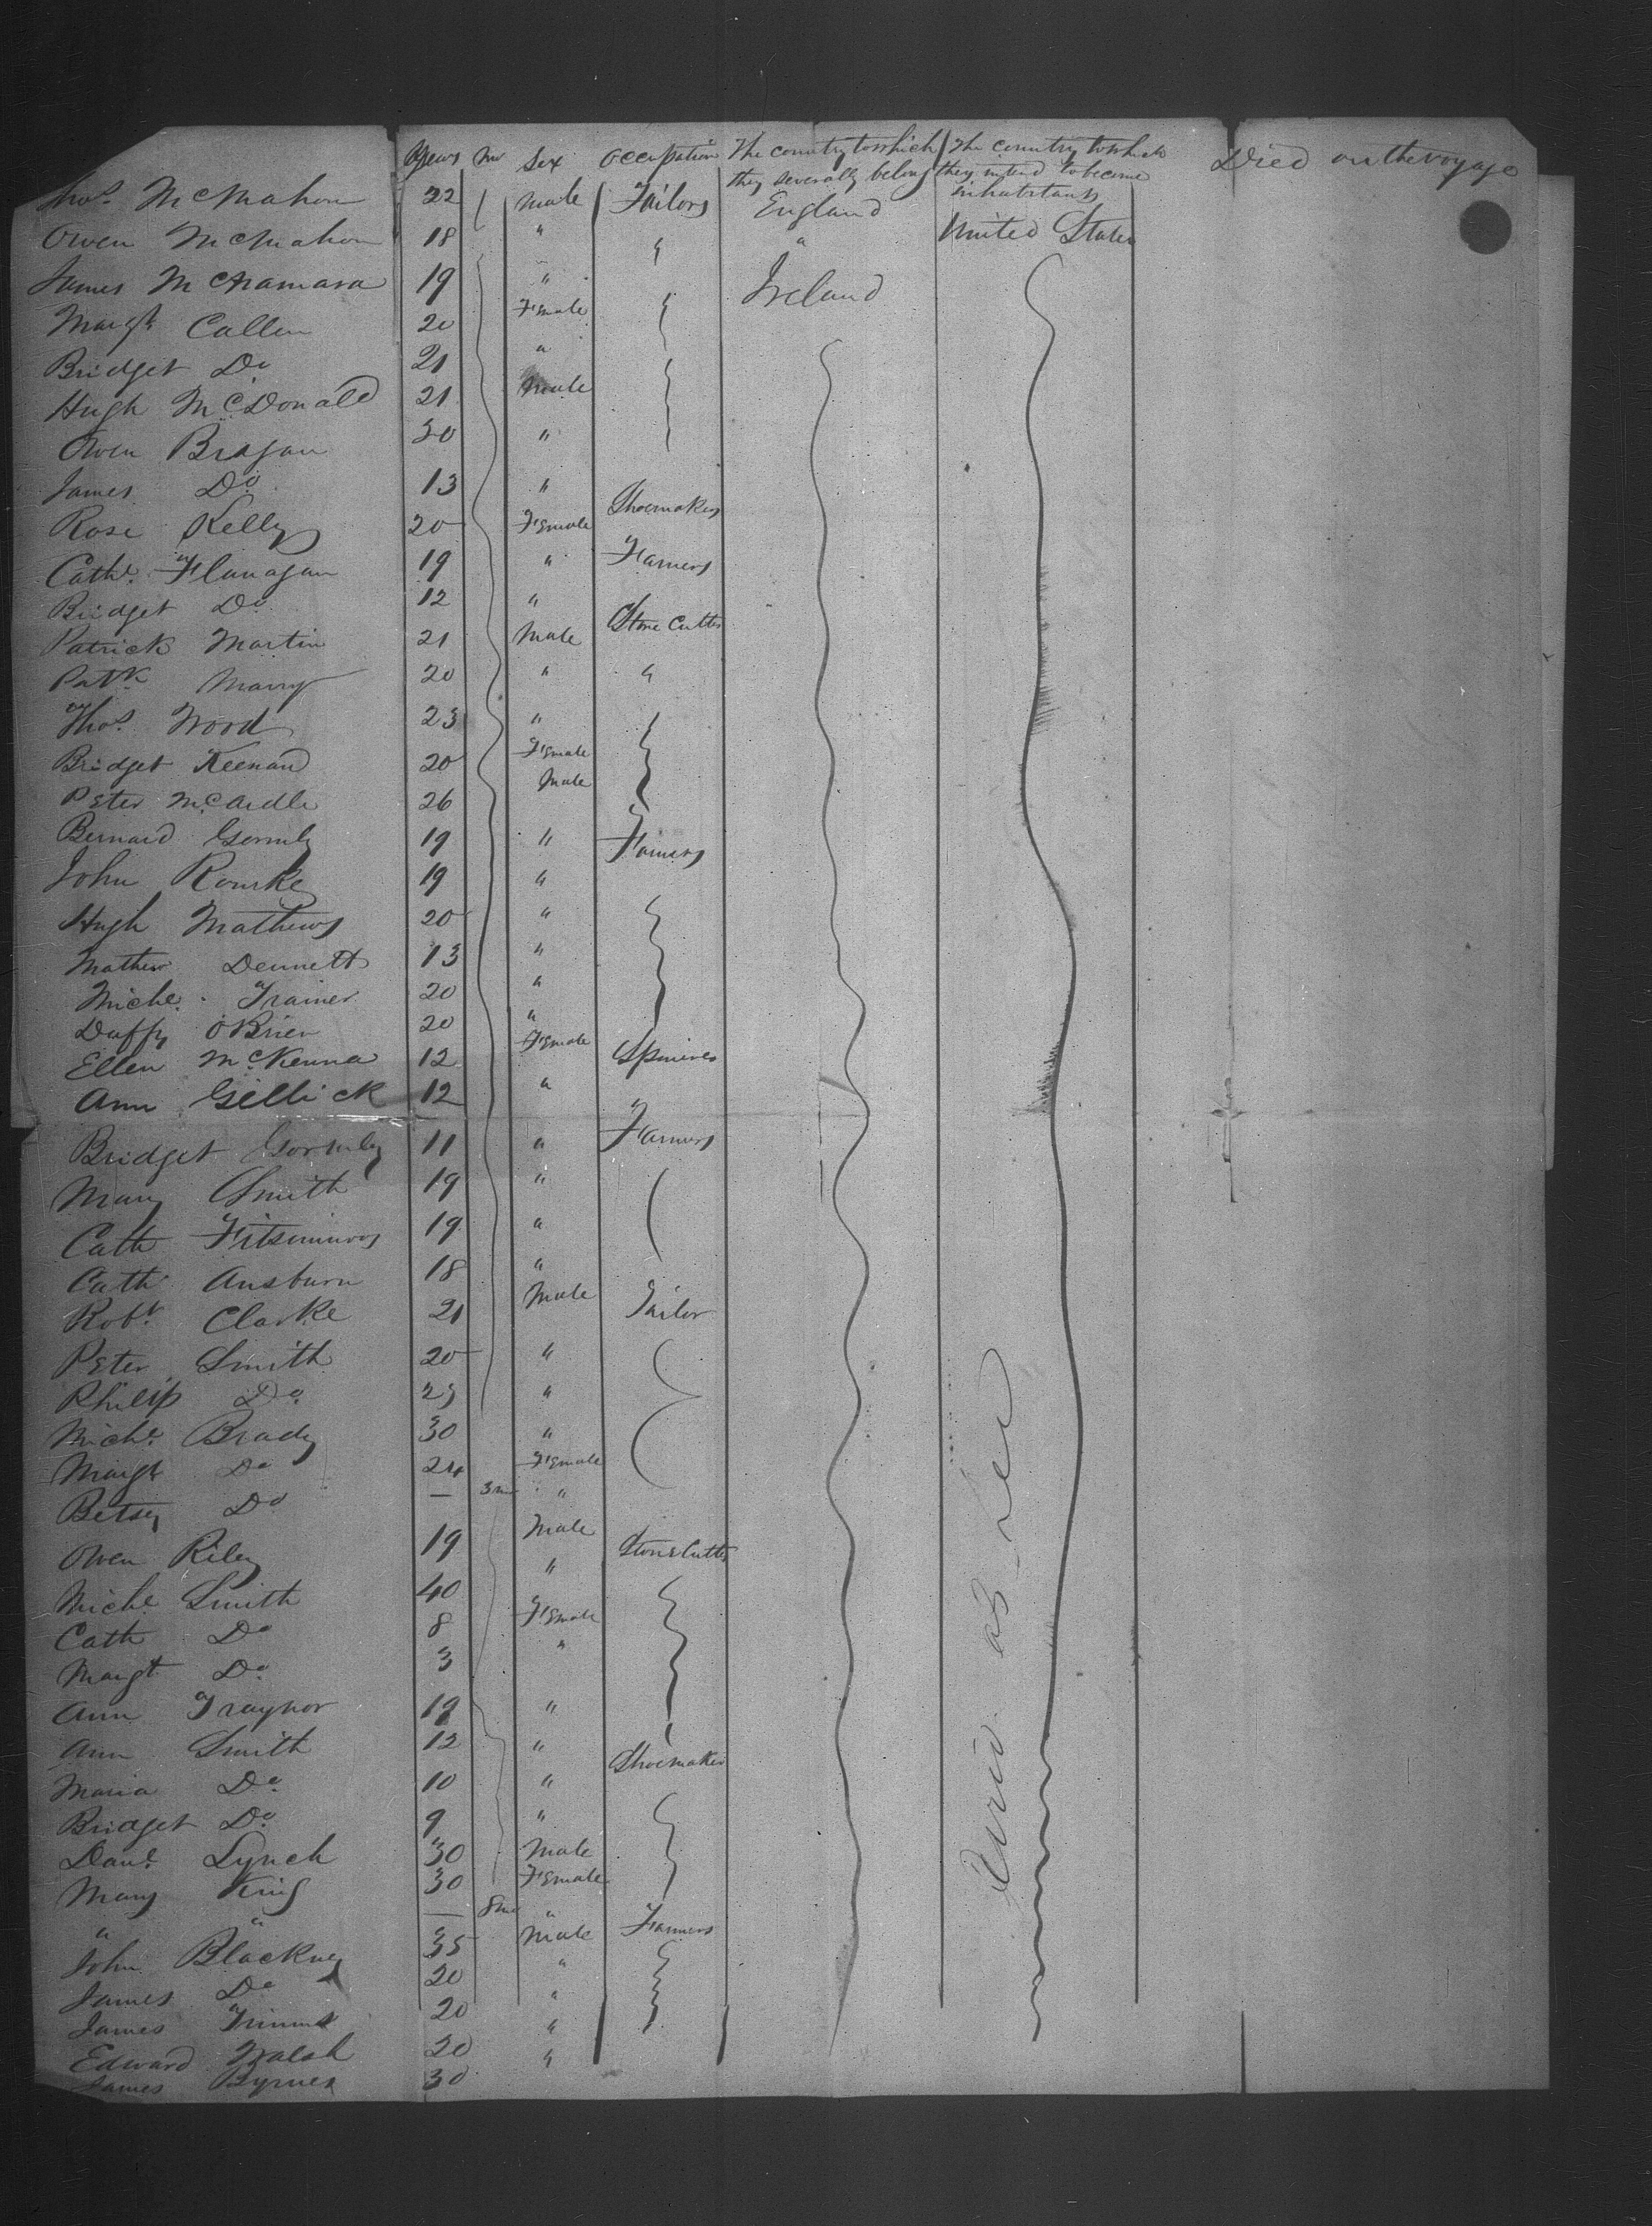 Years Mo Sex Occupation The country to which they severally belong The country to which they intend to become inhabitants Died on the voyage
Thos. McMahon 22 Male Tailors England
Owen McMahon 18 " " " United States
James McNamara 19 " Ireland
Margt. Callen 20 Female
Bridget Do 21 "
Hugh McDonald 21 Male
Owen Bragan 30 "
James Do 13 "
Rose Kelly 20 Female Shoemakers
Cathe. Flanagan 19 " Farmers
Bridget Do 12 "
Patrick Martin 21 Male Stone Cutter
Patk 20 " "
Thos. Wood 23 "
Bridget Keenan 20 Female
Peter McArdle 26 Male
Bernard Gormly 19 " Farmers
John Rourke 19 "
Hugh Mathews 20 "
Mathew Dennett 13 "
Miche. Trainer 20 "
Duffy OBrien 20 "
Ellen McKenna 12 Female
Ann Gillick 12 "
Bridget Gormley 11 " Farmers
Mary Smith 19 "
Cath 19 "
Cath Ausburn 18 "
Robt. Clarke 21 Male Tailor
Peter Smith 20 "
Philip Do. "
Miche. Brady 30 "
Margt Do 24 Female
Betsy Do — 3 mo "
Owen Riley 19 Male Stone Cutter
Miche Smith 40 "
Cath Do 8 Female
Margt Do. 3 "
Ann Traynor 19 "
Ann Smith 12 "
Maria Do. 10 " Shoemaker
Bridget Do. 9 "
Danl. Lynch 30 Male
Mary King 30 Female
" " — 8 mo "
John Blackney 35 Male Farmers
James Do 20 "
James 20 "
Edward Walsh 20 "
James Byrnes 30 "